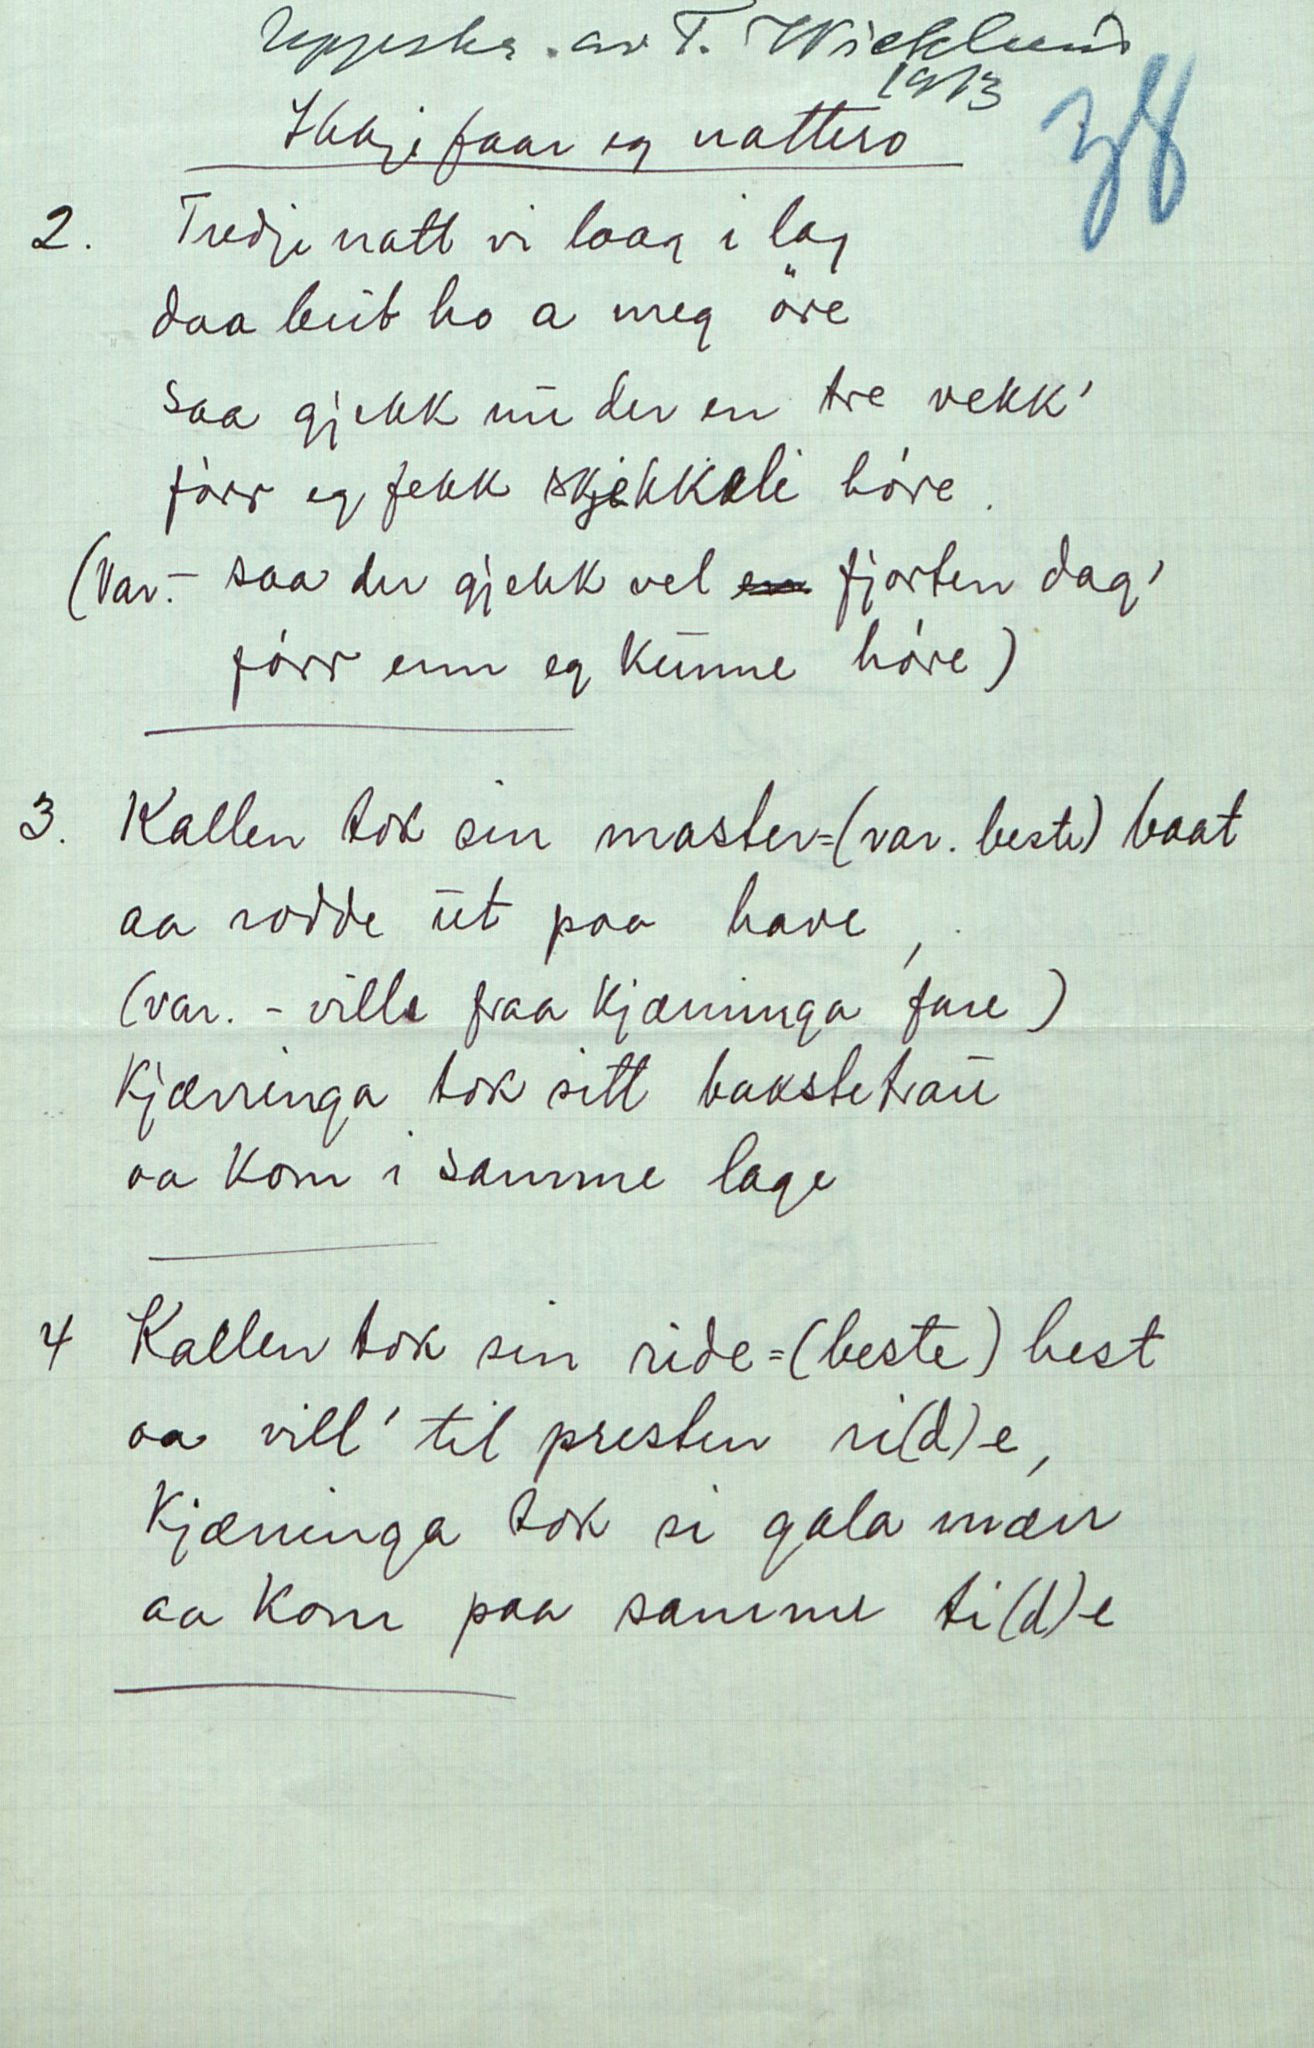 Uppskr. av T. Wicklund
1913
38
Ikkje faar eg nattero
2. Tredje natt vi laag i lag
daa beit ho a meg öre
saa gjekk ūū der en tre vekk'
fórr eg fekk skjekkeli hóre.
(Var.- saa der gjekk vel en fjorten dag'
fórr enn eg kūnne hóre)
3. Kallen tok sin master=(var. beste) baat
aa rodde ūt paa have,
(var. - ville fraa kjærringa fare)
Kjærringa tok sitt bakstetraū
aa kom i samme lage
4 Kallen tok sin ride=(beste) hest
aa vill' til presten ri(d)-e,
Kjærringa tok si gala mærr
aa kom paa samme ti(d)-e